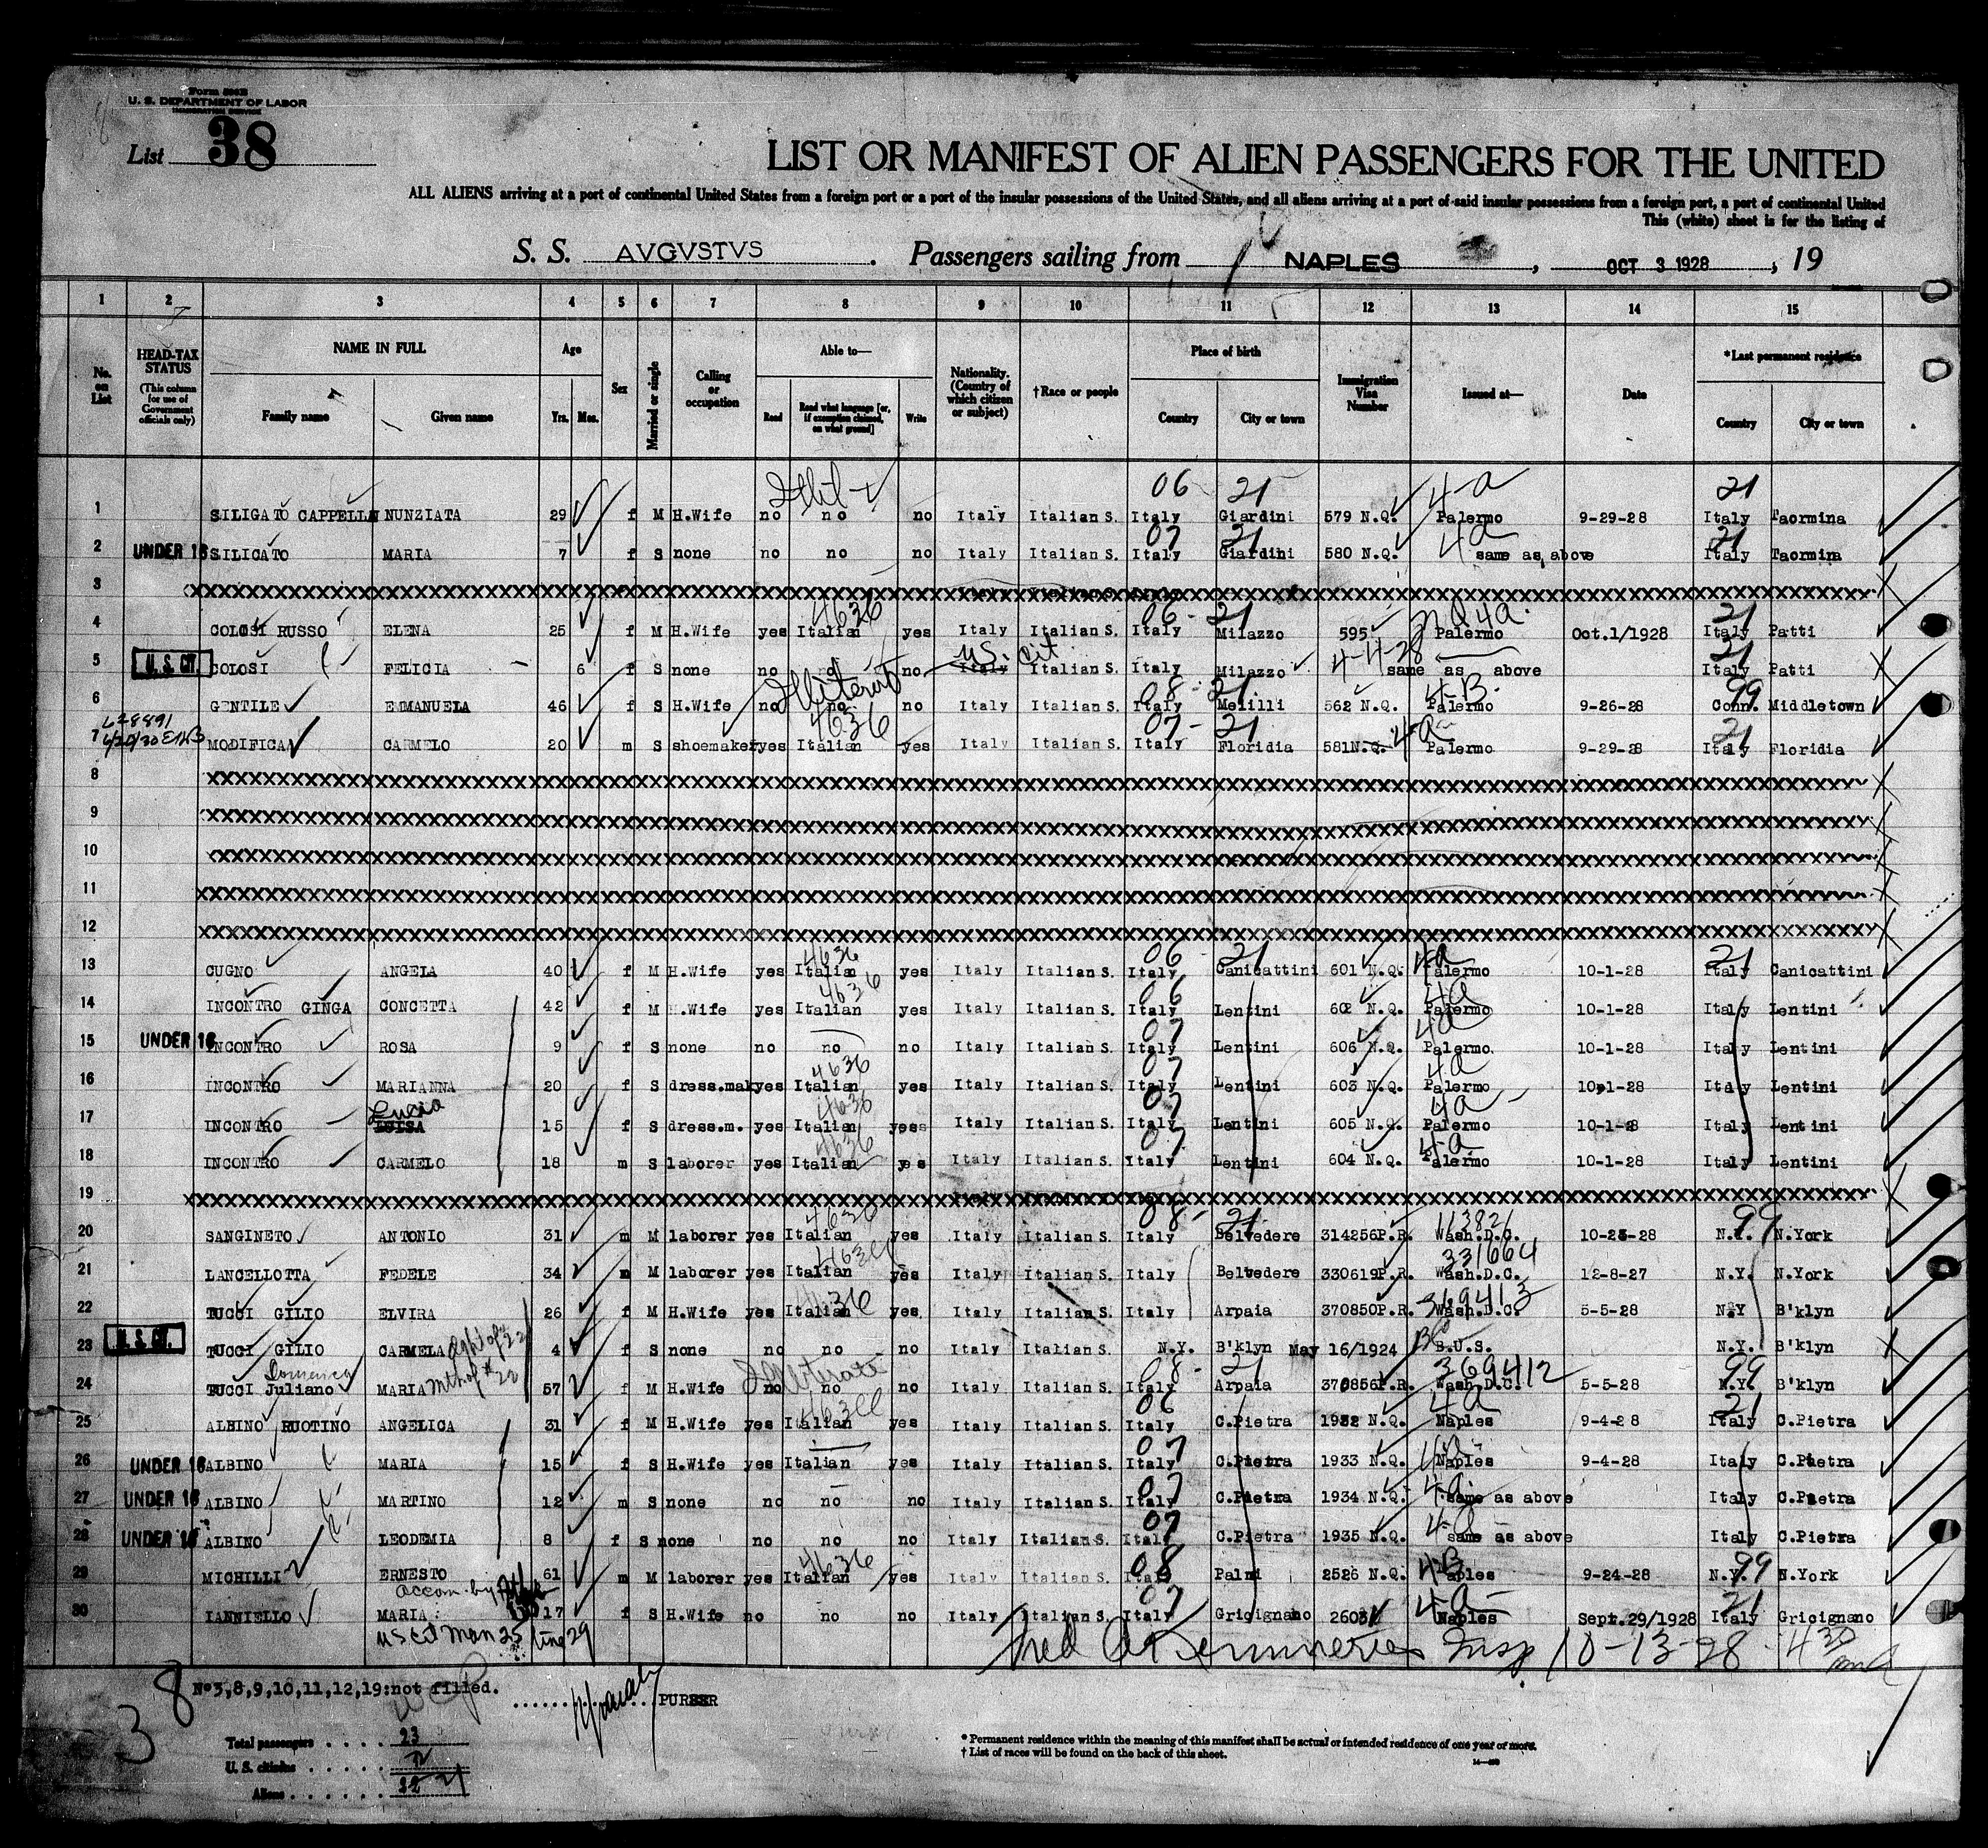 Form 500B
U. S. DEPARTMENT OF LABOR
IMMIGRATION SERVICE
List 38
LIST OR MANIFEST OF ALIEN PASSENGERS FOR THE UNITED
ALL ALIENS arriving at a port of continental United States from a foreign port or a port of the insular possessions of the United States, and all aliens arriving at a port of said insular possessions from a foreign port, a port of continental United
This (white) sheet is for the listing of
S. S. AVGVSTVS . Passengers sailing from NAPLES , OCT 3 1928 , 19
1 2 3 4 5 6 7 8 9 10 11 12 13 14 15
No. on List HEAD-TAX STATUS (This column for use of Government officials only) NAME IN FULL Family name Given name Age Yrs. Mos. Sex Married or single Calling or occupation Able to— Read Read what language [or, if exemption claimed, on what ground] Write Nationality. (Country of which citizen or subject) †Race or people Place of birth Country City or town Immigration Visa Number Issued at— Date *Last permanent residence Country City or town
Illit 06 21 4-a 21
1 SILIGATO CAPPELLA NUNZIATA 29 f M H.Wife no no no Italy Italian S. Italy Giardini 579 N.Q. Palermo 9-29-28 Italy Taormina
07 21 4a 21
2 UNDER 16 SILIGATO MARIA 7 f S none no no no Italy Italian S. Italy Giardini 580 N.Q. same as above Italy Taormina
3 XXXXXXXXXXXXXXXXXXXXXXXX
4636 06 - 21 NQ 4a 21
4 COLOSI RUSSO ELENA 25 f M H.Wife yes Italian yes Italy Italian S. Italy Milazzo 595 Palermo Oct.1/1928 Italy Patti
U.S. Cit 4-4-28 21
5 U. S. CIT. COLOSI FELICIA 6 f S none no no no Italy Italian S. Italy Milazzo same as above Italy Patti
Illiterate 08 - 21 4-B 99
6 GENTILE EMMANUELA 46 f S H.Wife no no no Italy Italian S. Italy Melilli 562 N.Q. Palermo 9-26-28 Conn. Middletown
4636 07 - 21 4a 21
7 MODIFICA CARMELO 20 m S shoemaker yes Italian yes Italy Italian S. Italy Floridia 581N.Q. Palermo 9-29-28 Italy Floridia
8 XXXXXXXXXXXXXXXXXXXXXXXX
9 XXXXXXXXXXXXXXXXXXXXXXXX
10 XXXXXXXXXXXXXXXXXXXXXXXX
11 XXXXXXXXXXXXXXXXXXXXXXXX
12 XXXXXXXXXXXXXXXXXXXXXXXX
4636 06 21 4a 21
13 CUGNO ANGELA 40 f M H.Wife yes Italian yes Italy Italian S. Italy Canicattini 601 N.Q. Palermo 10-1-28 Italy Canicattini
4636 06 4a
14 INCONTRO GINGA CONCETTA 42 f M H.Wife yes Italian yes Italy Italian S. Italy Lentini 602 N.Q. Palermo 10-1-28 Italy Lentini
07 4a
15 UNDER 16 INCONTRO ROSA 9 f S none no no no Italy Italian S. Italy Lentini 606 N.Q. Palermo. 10-1-28 Italy Lentini
4636 07 4a
16 INCONTRO MARIANNA 20 f S dress.mak yes Italian yes Italy Italian S. Italy Lentini 603 N.Q. Palermo 10-1-28 Italy Lentini
Lucia 4636 07 4a
17 INCONTRO LUISA 15 f S dress.m. yes Italian yes Italy Italian S. Italy Lentini 605 N.Q. Palermo 10-1-28 Italy Lentini
4636 07 4a
18 INCONTRO CARMELO 18 m S laborer yes Italian yes Italy Italian S. Italy Lentini 604 N.Q. Palermo 10-1-28 Italy Lentini
19 XXXXXXXXXXXXXXXXXXXXXXXX
4636 08 - 21 113821 99
20 SANGINETO ANTONIO 31 m M laborer yes Italian yes Italy Italian S. Italy Belvedere 314256P.R. Wash.D.C. 10-25-28 N.Y. N.York
331664
21 LANCELLOTTA FEDELE 34 m M laborer yes Italian yes Italy Italian S. Italy Belvedere 330619P.R. Wash.D.C. 12-8-27 N.Y. N.York
369413
22 TUCCI GILIO ELVIRA 26 f M H.Wife yes Italian yes Italy Italian S. Italy Arpaia 370850P.R. Wash.D.C. 5-5-28 N.Y B'klyn
23 U. S. CIT. TUCCI GILIO CARMELA 4 f S none no no no Italy Italian S. N.Y. B'klyn May 16/1924 B.U.S. N.Y. B'klyn
Domenica Illiterate 08 - 21 369412 99
24 TUCCI Juliano MARIA 57 f M H.Wife no no no Italy Italian S. Italy Arpaia 370856P.R. Wash.D.C. 5-5-28 N.Y. B'klyn
06 4a 21
25 ALBINO RUOTINO ANGELICA 31 f M H.Wife yes Italian yes Italy Italian S. Italy C.Pietra 1932 N.Q. Naples 9-4-28 Italy C.Pietra
07 4a
26 UNDER 16 ALBINO MARIA 15 f S H.Wife yes Italian yes Italy Italian S. Italy C.Pietra 1933 N.Q. Naples 9-4-28 Italy C.Pietra
07 4a
27 UNDER 16 ALBINO MARTINO 12 m S none no no no Italy Italian S. Italy C.Pietra 1934 N.Q. same as above Italy C.Pietra
07 4a
28 UNDER 16 ALBINO LEODEMIA 8 f S none no no no Italy Italian S. Italy C.Pietra 1935 N.Q. same as above Italy C.Pietra
4636 08 4B 99
29 MICHILLI ERNESTO 61 m M laborer yes Italian yes Italy Italian S. Italy Palmi 2526 N.Q. Naples 9-24-28 N.Y. N.York
accom. by 07 4a 21
30 IANNIELLO MARIA 17 f S H.Wife no no no Italy Italian S. Italy Gricignano 2603 Naples Sept.29/1928 Italy Gricignano
Insp 10-13-28 4 30
Nº3,8,9,10,11,12,19:not filled. PURSER
38
Total passengers . . . . 23
U. S. citizens . . . . . 2
Aliens . . . . . . 21
* Permanent residence within the meaning of this manifest shall be actual or intended residence of one year or more.
† List of races will be found on the back of this sheet.